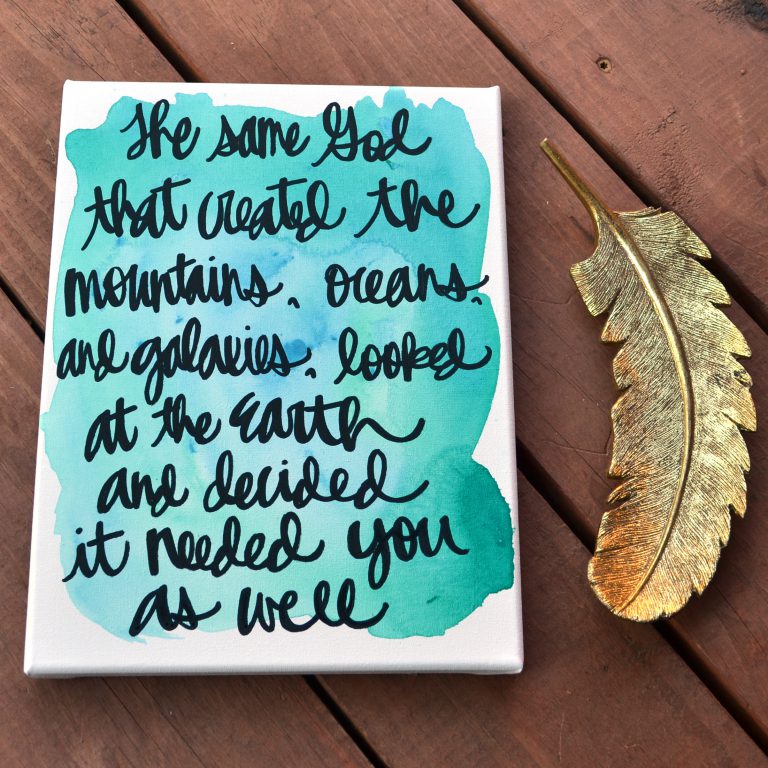 The same God
that created the
mountains, oceans,
and galaxies, looked
at the Earth
and decided
it needed you
as well